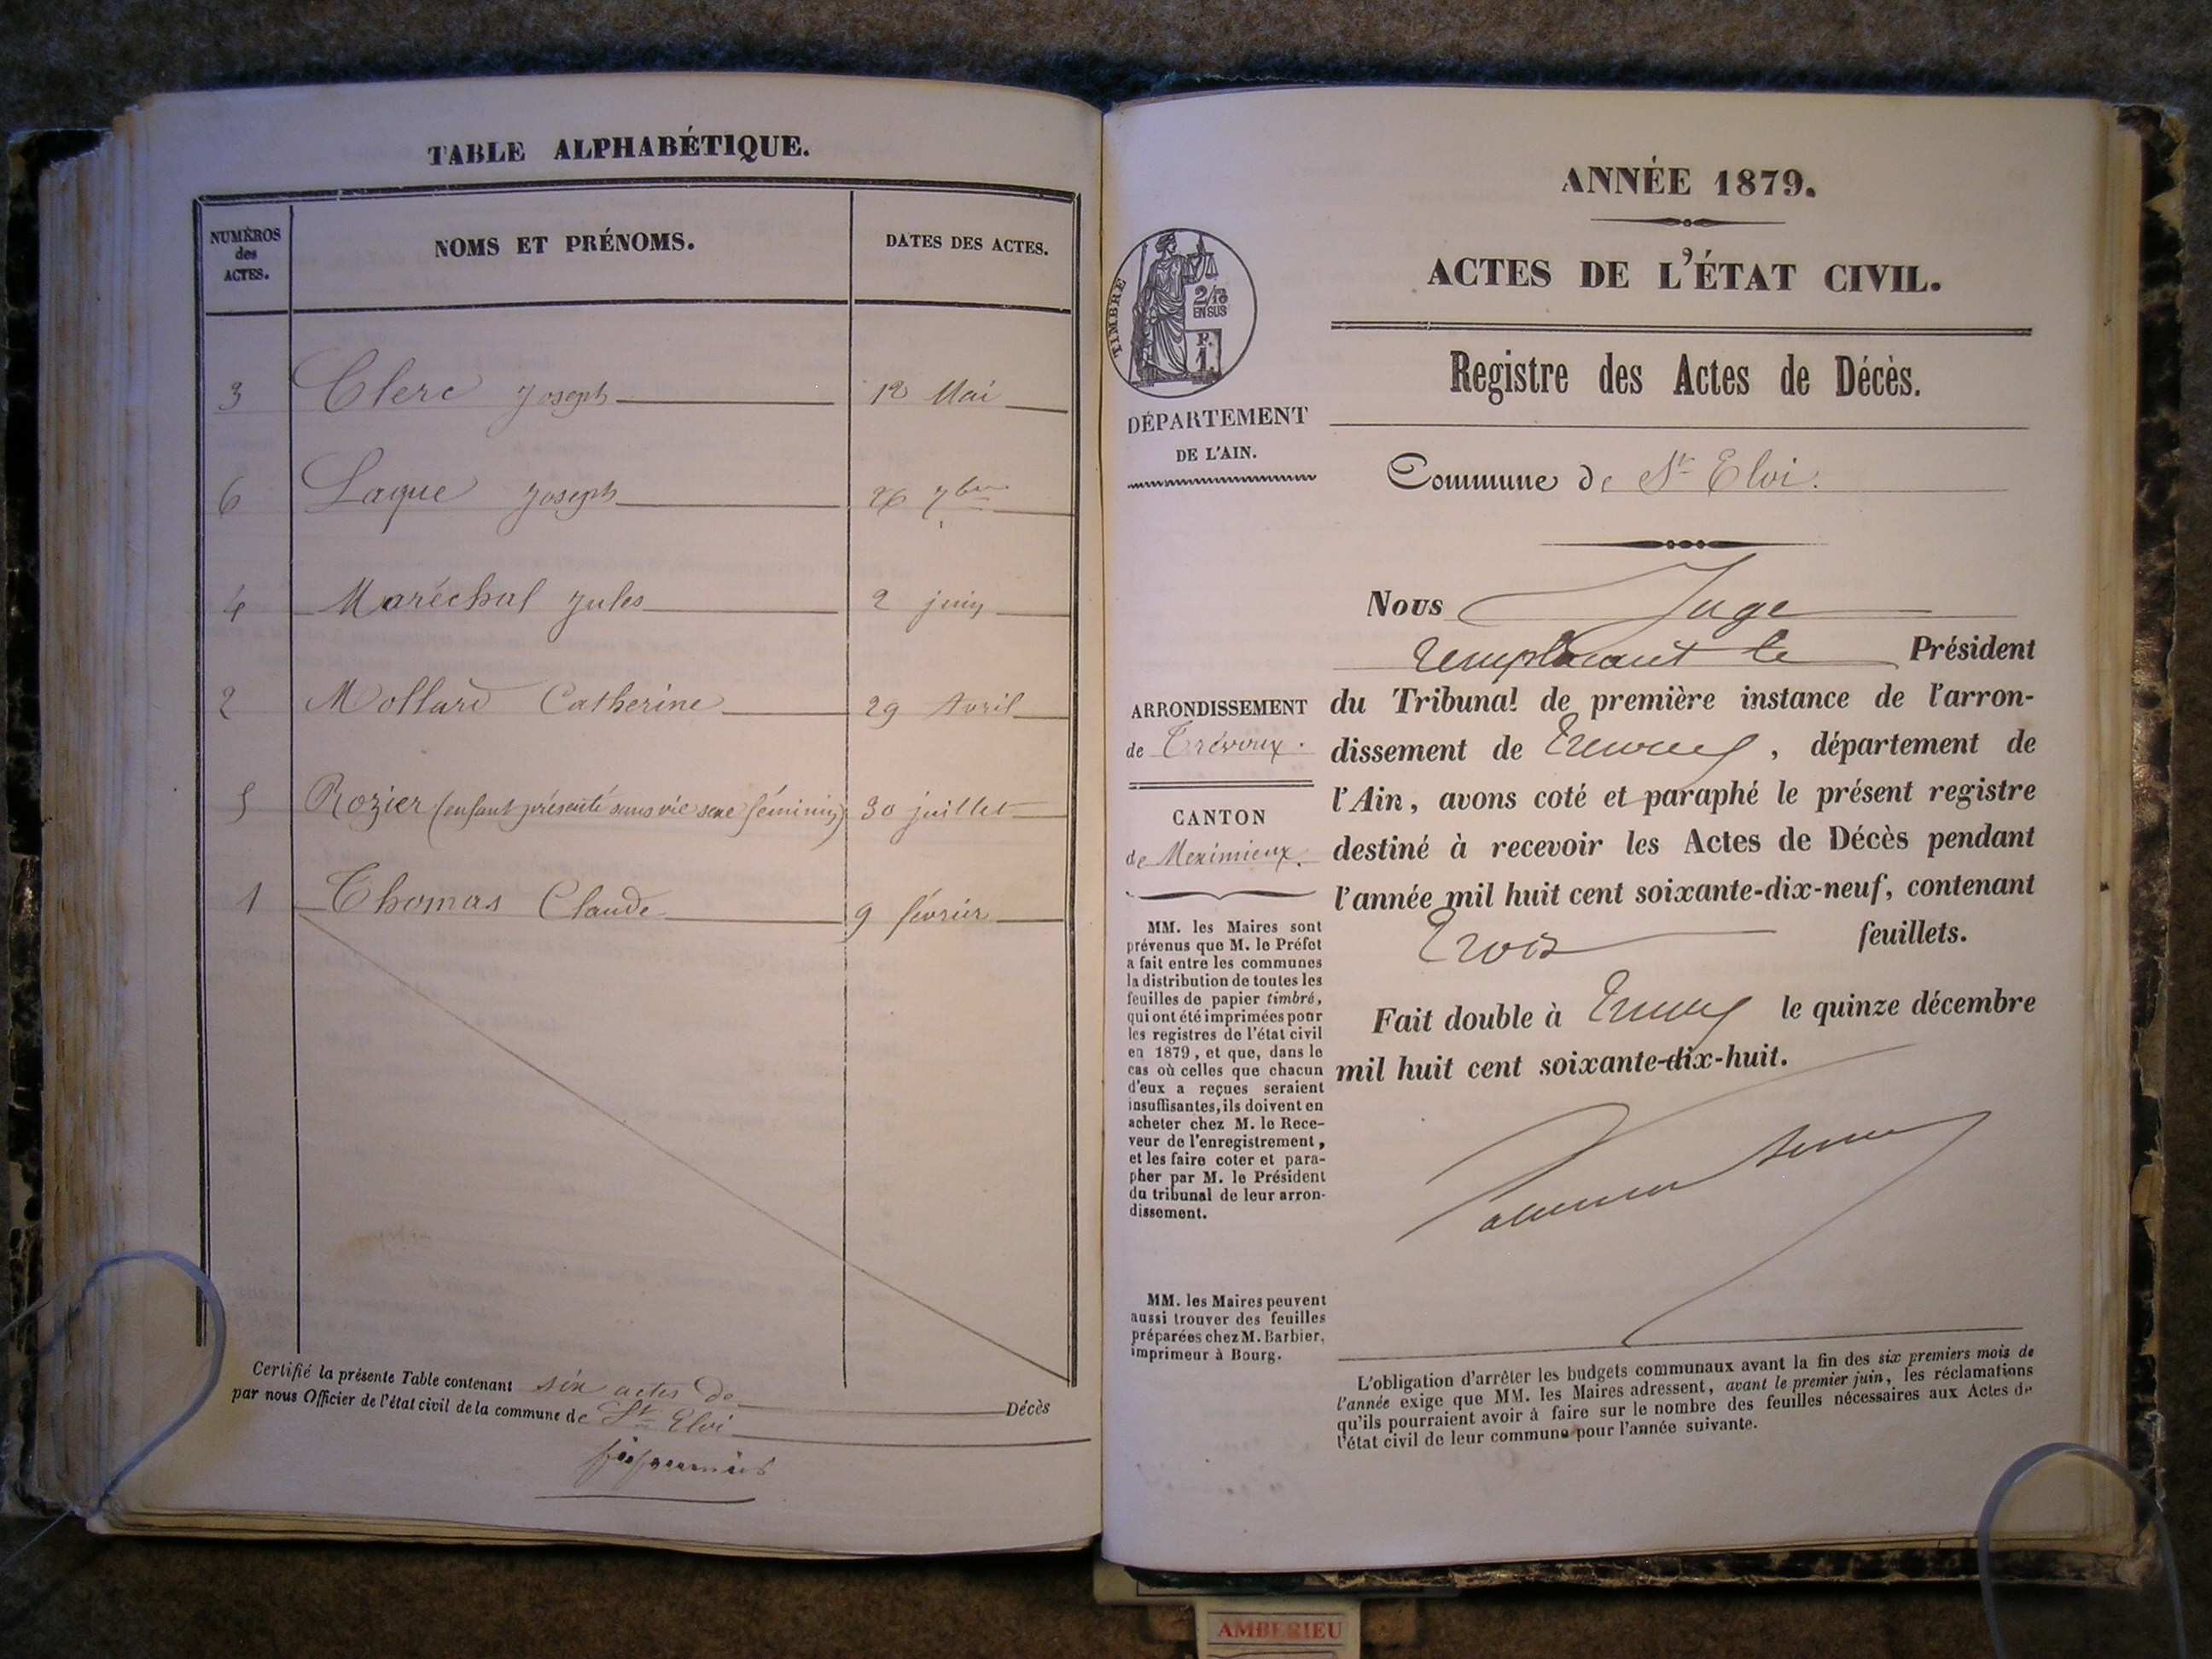 TABLE ALPHABÉTIQUE.
NUMÉROS des ACTES.
NOMS ET PRÉNOMS.
DATES DES ACTES.
3 Clerc Joseph 12 Mai
6 Laque Joseph 26 7bre
4 Maréchal Jules 2 juin
2 Mollard Catherine 29 Avril
5 Rozier (enfant présenté sans vie sexe féminin) 30 juillet
1 Thomas Claude 9 février
Certifié la présente Table contenant six actes de Décès
par nous Officier de l'état civil de la commune de St Eloi
ANNÉE 1879.
ACTES DE L'ÉTAT CIVIL.
Registre des Actes de Décès.
TIMBRE
2/10
EN SUS
P.
1.
DÉPARTEMENT
DE L'AIN.
Commune de St Eloi.
Nous Juge
remplacant le Président
du Tribunal de première instance de l'arron-
dissement de Trévoux, département de
l'Ain, avons coté et paraphé le présent registre
destiné à recevoir les Actes de Décès pendant
l'année mil huit cent soixante-dix-neuf, contenant
Trois feuillets.
Fait double à Trévoux le quinze décembre
mil huit cent soixante-dix-huit.
ARRONDISSEMENT
de Trévoux.
CANTON
de Meximieux.
MM. les Maires sont
prévenus que M. le Préfet
a fait entre les communes
la distribution de toutes les
feuilles de papier timbré,
qui ont été imprimées pour
les registres de l'état civil
en 1879, et que, dans le
cas où celles que chacun
d'eux a reçues seraient
insuffisantes, ils doivent en
acheter chez M. le Rece-
veur de l'enregistrement,
et les faire coter et para-
pher par M. le Président
du tribunal de leur arron-
dissement.
MM. les Maires peuvent
aussi trouver des feuilles
préparées chez M. Barbier,
imprimeur à Bourg.
L'obligation d'arrêter les budgets communaux avant la fin des six premiers mois de
l'année exige que MM. les Maires adressent, avant le premier juin, les réclamations
qu'ils pourraient avoir à faire sur le nombre des feuilles nécessaires aux Actes de
l'état civil de leur commune pour l'année suivante.
AMBERIEU